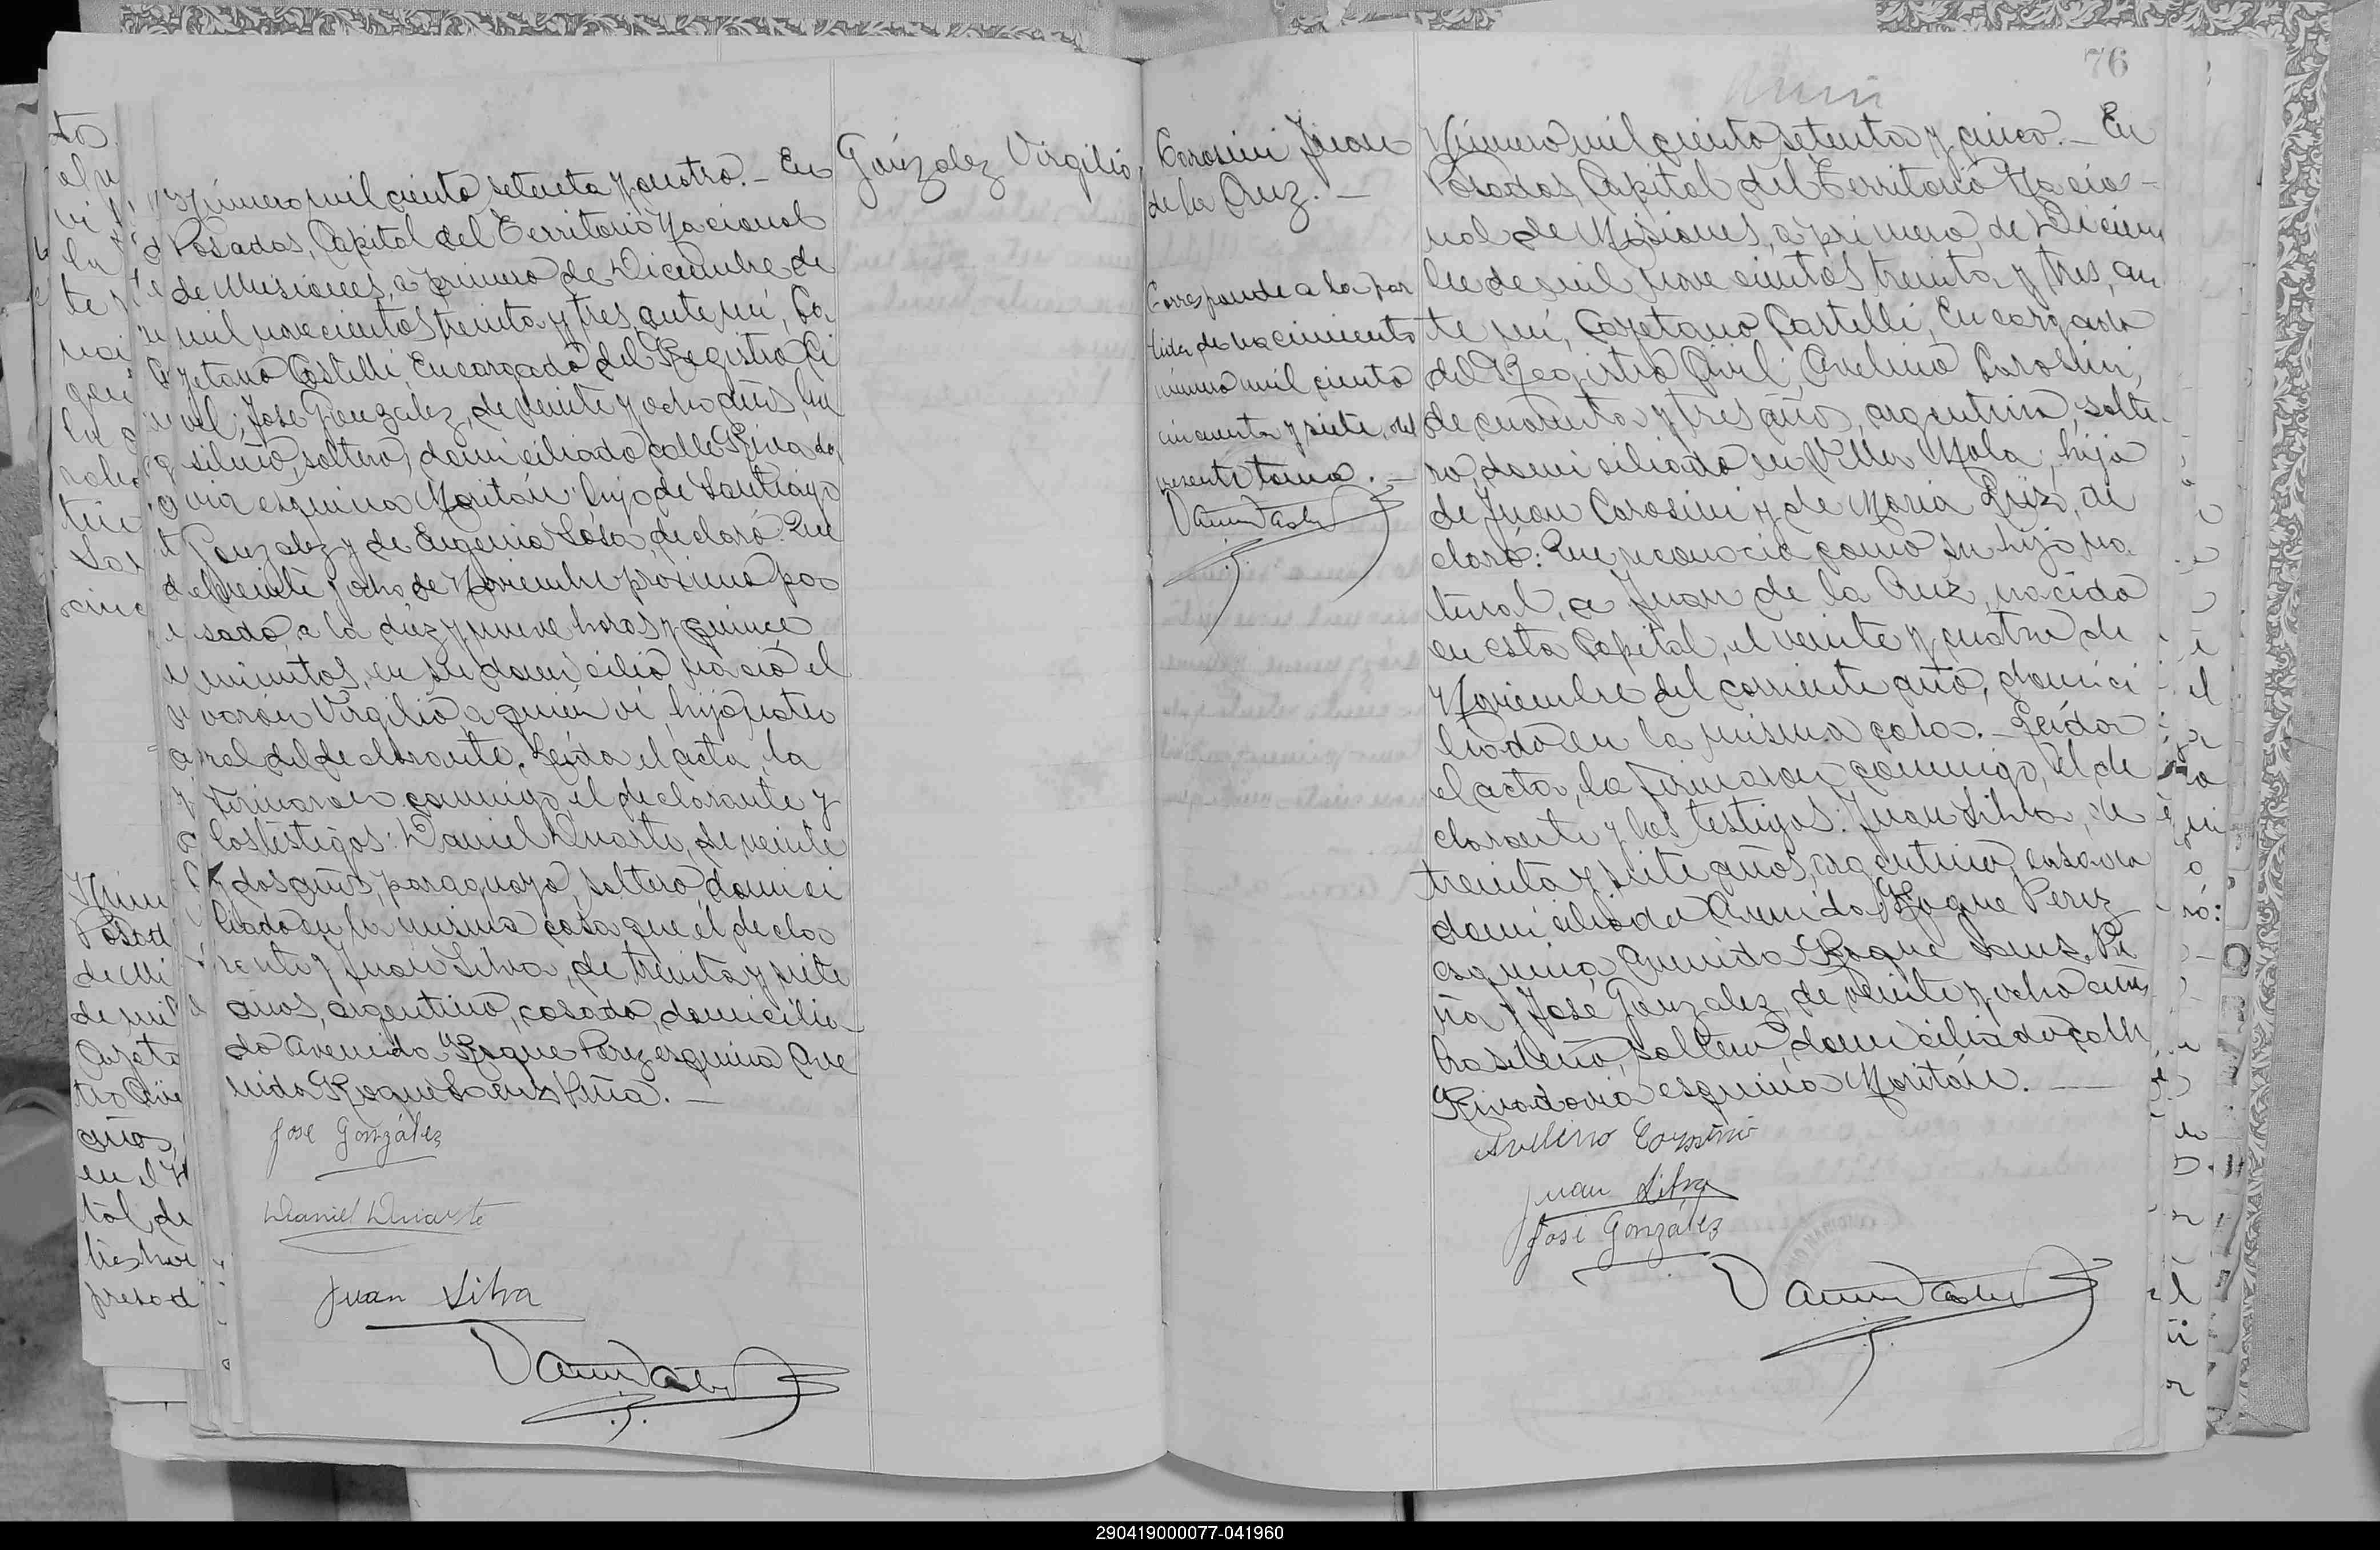 Número mil ciento setenta y cuatro.- En
Posadas, Capital del Territorio Nacional
de Misiones, a primero de Diciembre de
mil novecientos treinta y tres, ante mí, Ca
yetano Castelli, Encargado del Registro Ci
vil; José González, de veinte y ocho años, bra
sileño, soltero, domiciliado calle Rivada
via esquina Moritán, hijo de Santiago
González y de Eugenia Sosa, declaró: Que
el veinte y ocho de Noviembre próximo pa
sado, a la diez y nueve horas y quince
minutos, en su domicilio nació el
varón Virgilio a quién ví, hijo natu
ral del declarante. Leída el acta, la
firmaron conmigo el declarante y
los testigos: Daniel Duarte, de veinte
y dos años, paraguayo, soltero, domici
liado en la misma casa que el decla
rante y Juan Silva, de treinta y siete
años, argentino, casado, domicilia
do Avenida Roque Perez esquina Ave
nida Roque Saenz Peña.-
José González
Daniel Duarte
Juan Silva
González Virgilio
Carosini Juan
de la Cruz.-
Corresponde a la par
tida de nacimiento
número mil ciento
cincuenta y siete, del
presente tomo.-
76
Número mil ciento setenta y cinco.- En
Posadas, Capital del Territorio Nacio-
nal de Misiones, a primero de Diciem
bre de mil novecientos treinta y tres, an
te mí, Cayetano Castelli, Encargado
del Registro Civil; Avelino Carosini,
de cuarenta y tres años, argentino, solte-
ro, domiciliado en Villa Mola, hijo
de Juan Carosini y de María Ruiz, de
claró: Que reconocía como su hijo na
tural, a Juan de la Cruz, nacido
en esta Capital, el veinte y cuatro de
Noviembre del corriente año, domici
liado en la misma casa.- Leída
el acta, la firmaron conmigo, el de
clarante y los testigos: Juan Silva, de
treinta y siete años, argentino, casado
domiciliado Avenida Roque Perez
esquina Avenida Roque Saenz Pe
ña y José González, de veinte y ocho años
brasileño, soltero, domiciliado calle
Rivadavia esquina Moritán.-
Avelino Carosini
Juan Silva
José González
290419000077-041960